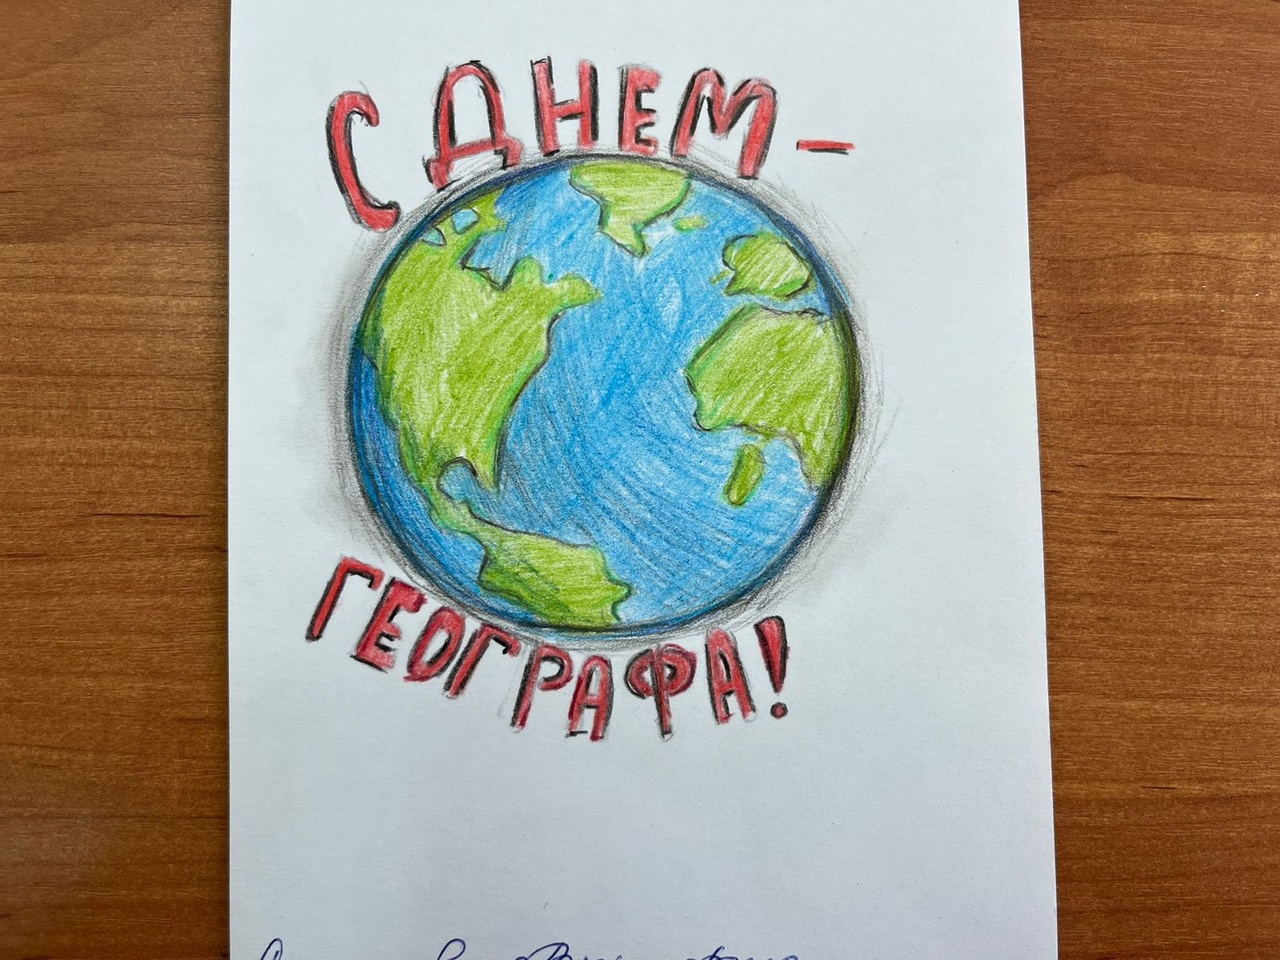 С ДНЕМ -
ГЕОГРАФА!